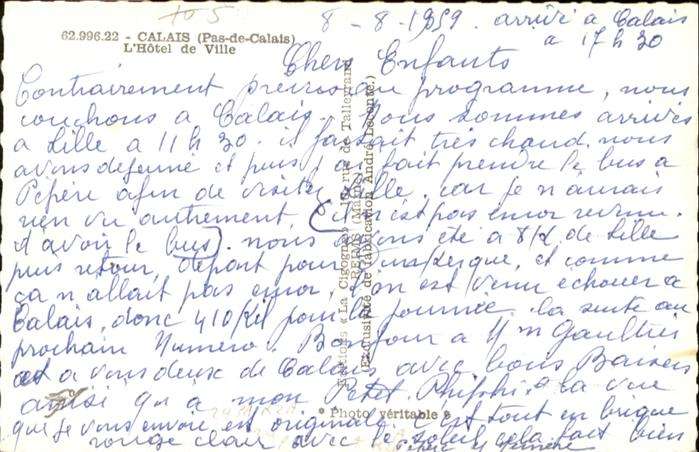 8-8-1959 arrivé à Calais
à 17h30
62.996.22 - CALAIS (Pas-de-Calais)
L'Hôtel de Ville
Chers Enfants
Contrairement prévu au programme, nous
couchons à Calais. Nous sommes arrivés
à Lille à 11h30. il faisait très chaud. nous
avons déjeuné et puis j'ai fait prendre le bus à
Pépère afin de visiter Lille, car je n'aurais
rien vu autrement. (il n'est pas encor revenu
d'avoir le bus). nous avons été à 8/K de Lille
puis retour, départ pour Dunkerque et comme
ça n'allait pas encor, l'on est venu échouer à
Calais, donc 410/Kil pour la journée. la suite au
prochain Numéro. Bonjour à Mm Gaultier
et à vous deux de Calais avec bons Baisers
ainsi qu'à mon Petit Phiphi. la vue
que je vous envoie est originale c'est tout en brique
rouge clair avec le soleil cela fait bien
Pépère et Mémère
Editions « La Cigogne » rue de Talleyrand
REIMS (Marne)
(Exclusivité de fabrication André Leconte.)
* Photo véritable *